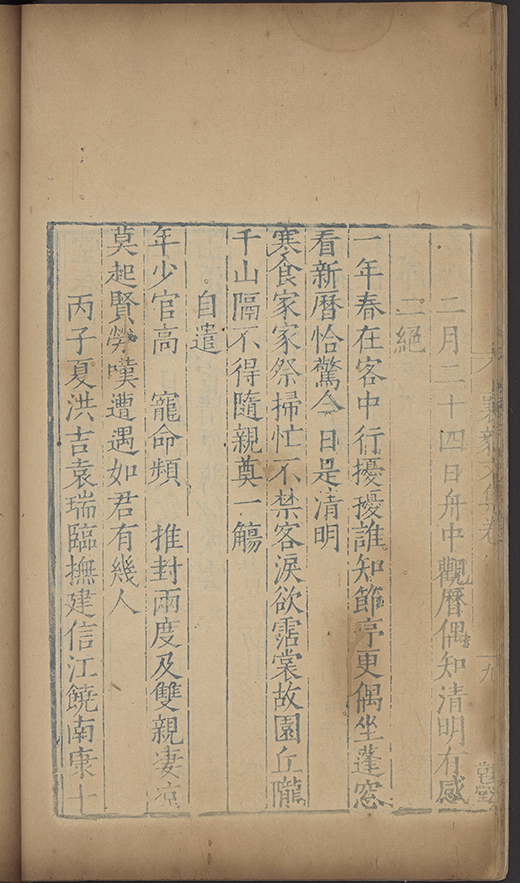 二月二十四日舟中觀曆偶知清明有感
二絕
一年春在客中行擾擾誰知節序更偶坐蓬窓
看新曆恰驚今日是清明
寒食家家祭掃忙不禁客淚欲霑裳故園丘隴
千山隔不得隨親奠一觴
自遣
年少官高 寵命頻 推封兩度及雙親凄凉
莫起賢勞嘆遭遇如君有幾人
丙子夏洪吉袁瑞臨撫建信江饒南康十